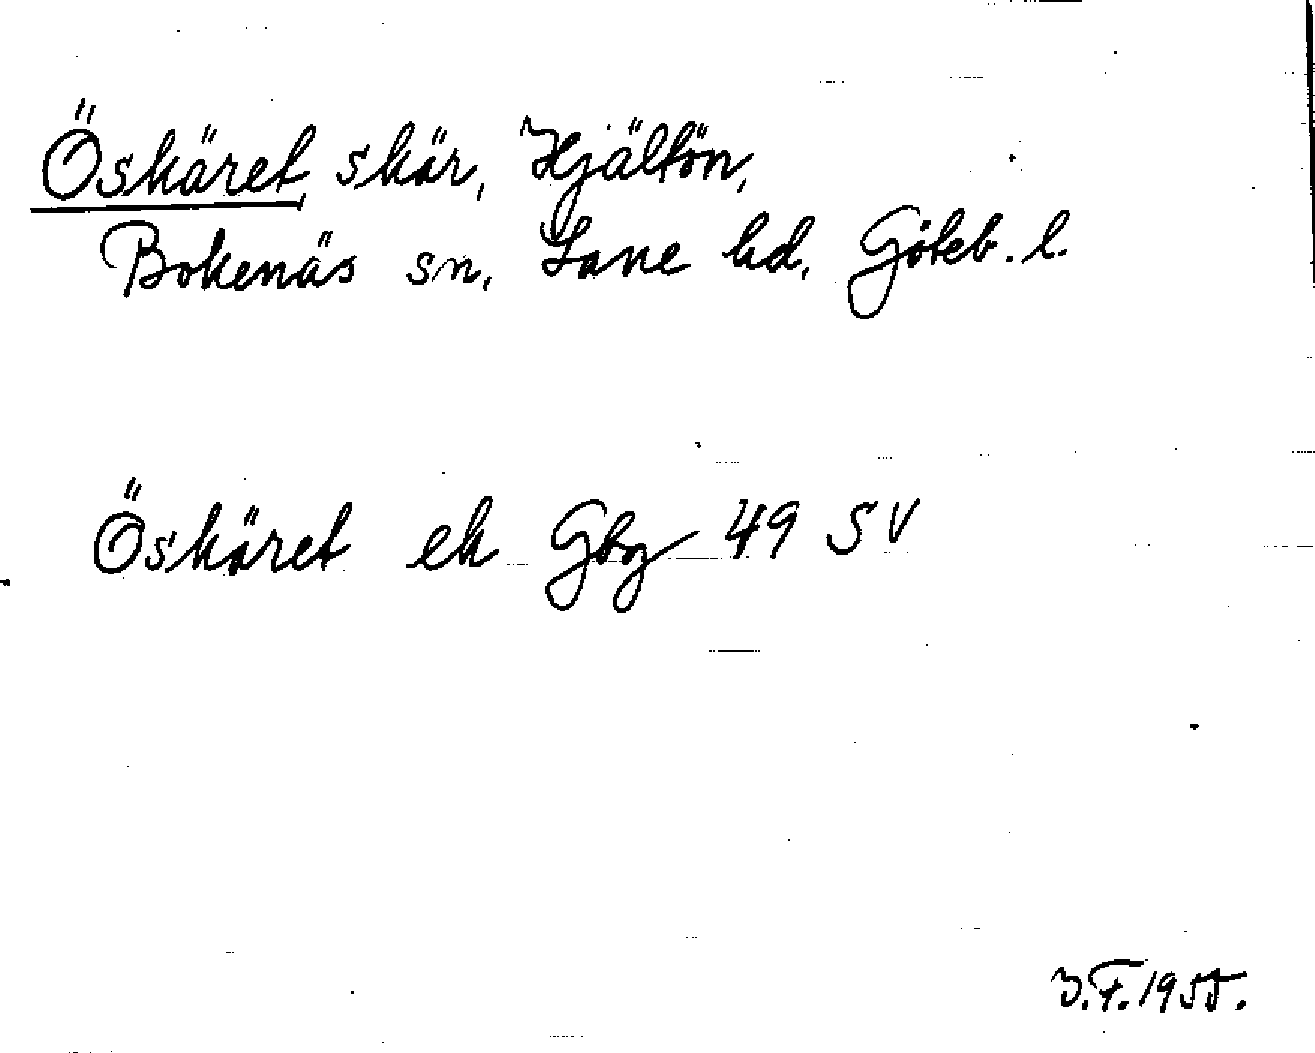 Öskäret, skär, Hjältön,
Bokenäs sn, Lane hd, Göteb. l.
Öskäret ek Gbg 49 SV
J.F. 1955.